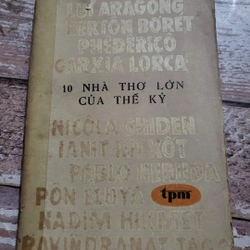 LUI ARAGÔNG
BERTÔN BORET
PHÊDÊRICÔ
GARXIA LORCA
10 NHÀ THƠ LỚN
CỦA THẾ KỶ
NICÔLA GHIDEN
IANIT RITXÔT
PABLO NERUDA
PÔN ÊLUYA
tpm
NADIM HITMET
RAVINDRANAT TAGO